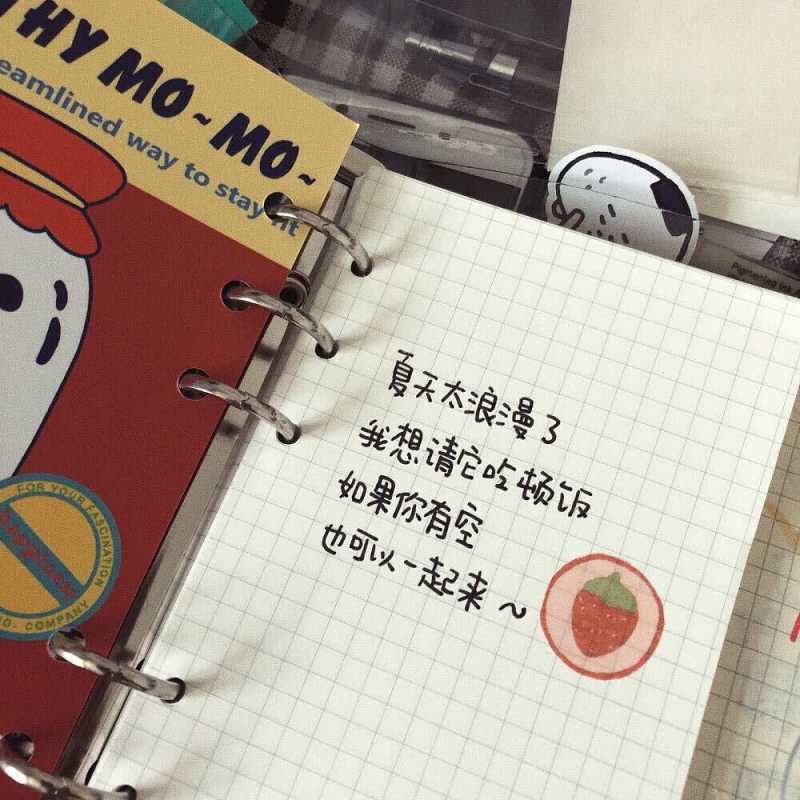 HY MO~MO~
eamlined way to stay fit
夏天太浪漫了
我想请它吃顿饭
如果你有空
也可以一起来~
FOR YOUR FASCINATION
COMPANY